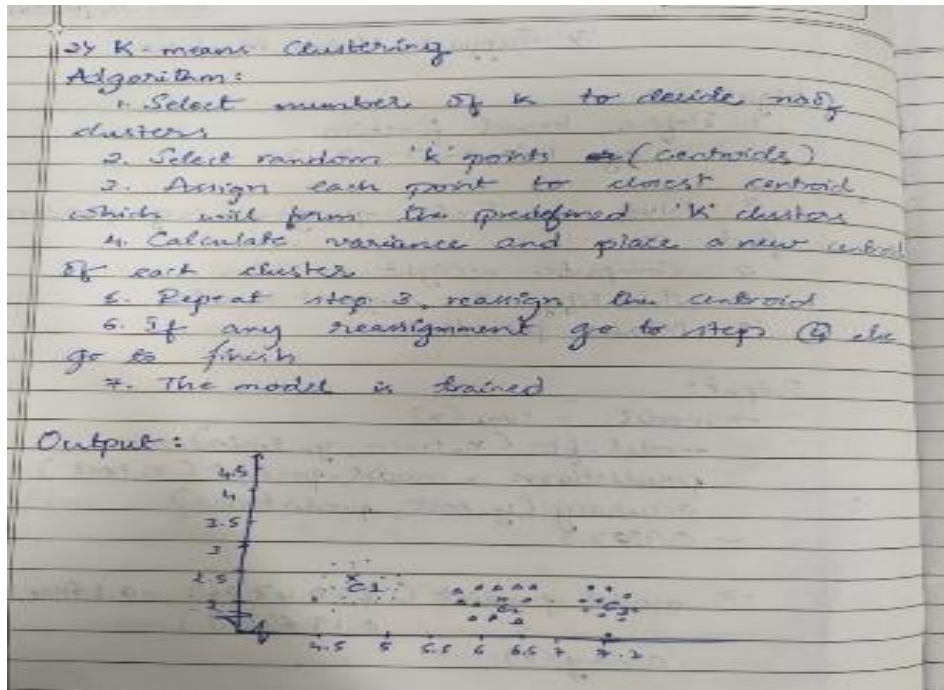 2) K-means Clustering
Algorithm:
1. Select number of k to decide no of
clusters
2. Select random 'k' points (centroids)
3. Assign each point to closest centroid
which will form the predefined 'K' clusters
4. Calculate variance and place a new centroid
of each cluster
5. Repeat step 3, reassign the centroid
6. If any reassignment go to step 4 else
go to finish
7. The model is trained
Output:
4.5
4
3.5
3
2.5
2
C1
C2
C3
4.5 5 5.5 6 6.5 7 7.2